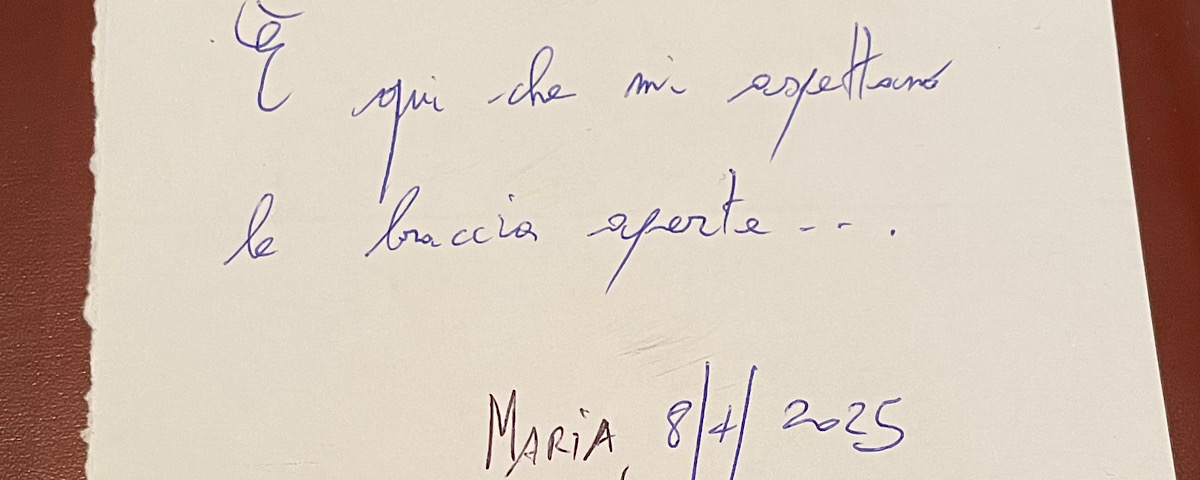 È
qui che mi aspettano
le braccia aperte --- .
MARIA, 8/4/2025